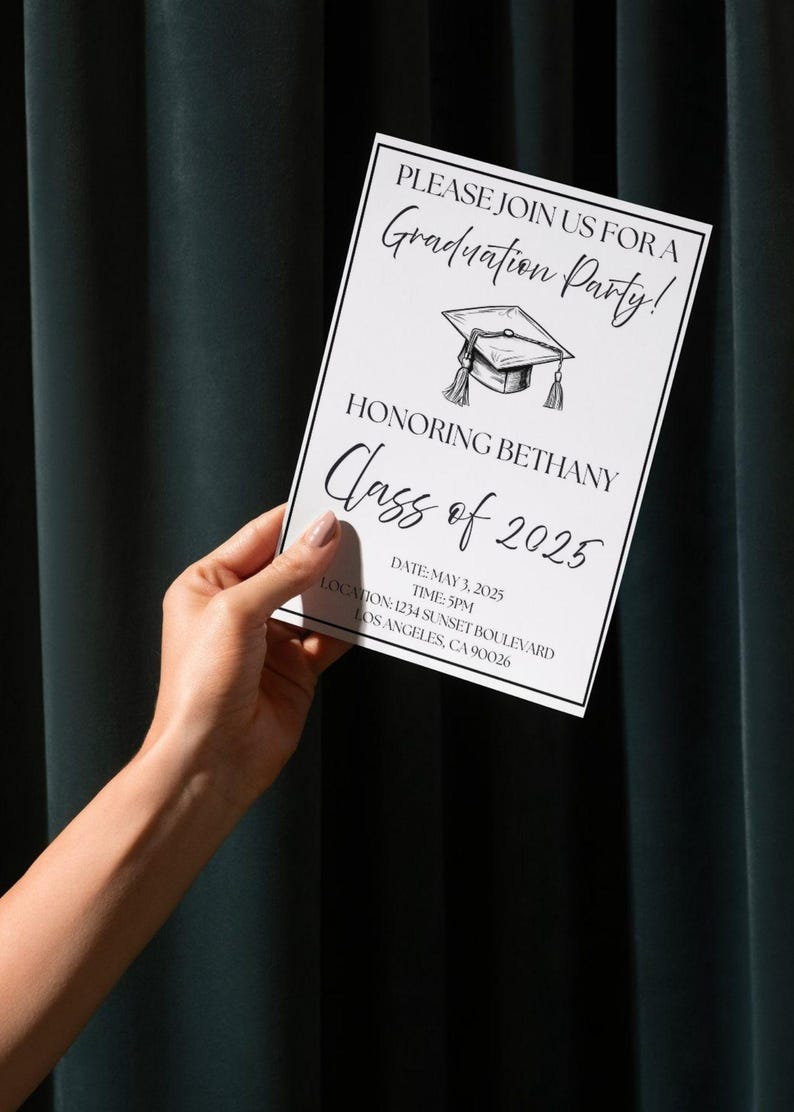 PLEASE JOIN US FOR A
Graduation Party!
HONORING BETHANY
Class of 2025
DATE: MAY 3, 2025
TIME: 5PM
LOCATION: 1234 SUNSET BOULEVARD
LOS ANGELES, CA 90026